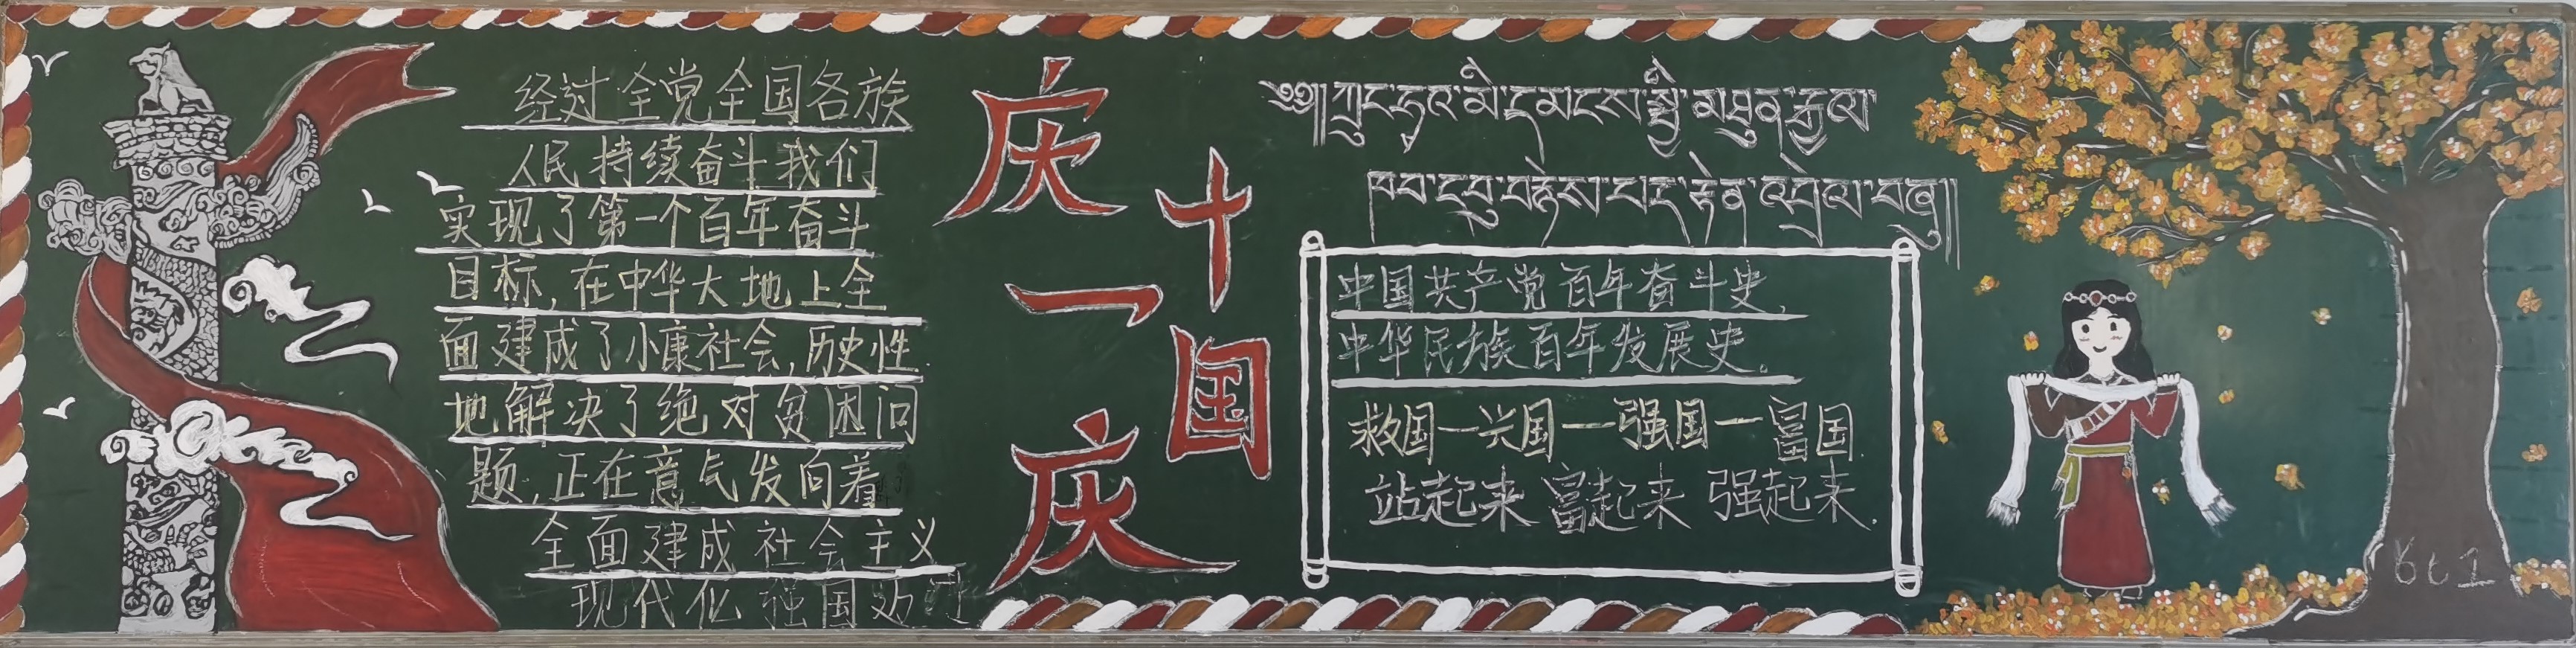 经过全党全国各族
人民持续奋斗我们
实现了第一个百年奋斗
目标,在中华大地上全
面建成了小康社会,历史性
地解决了绝对贫困问
题,正在意气发向着
全面建成社会主义
现代化强国
庆十一国庆
༄༅།།ཀྲུང་ཧྭ་མི་དམངས་སྤྱི་མཐུན་རྒྱལ་
ཁབ་དབུ་བརྙེས་པར་རྟེན་འབྲེལ་བཞུ།།
中国共产党百年奋斗史.
中华民族百年发展史.
救国一兴国一强国一富国
站起来 富起来 强起来.